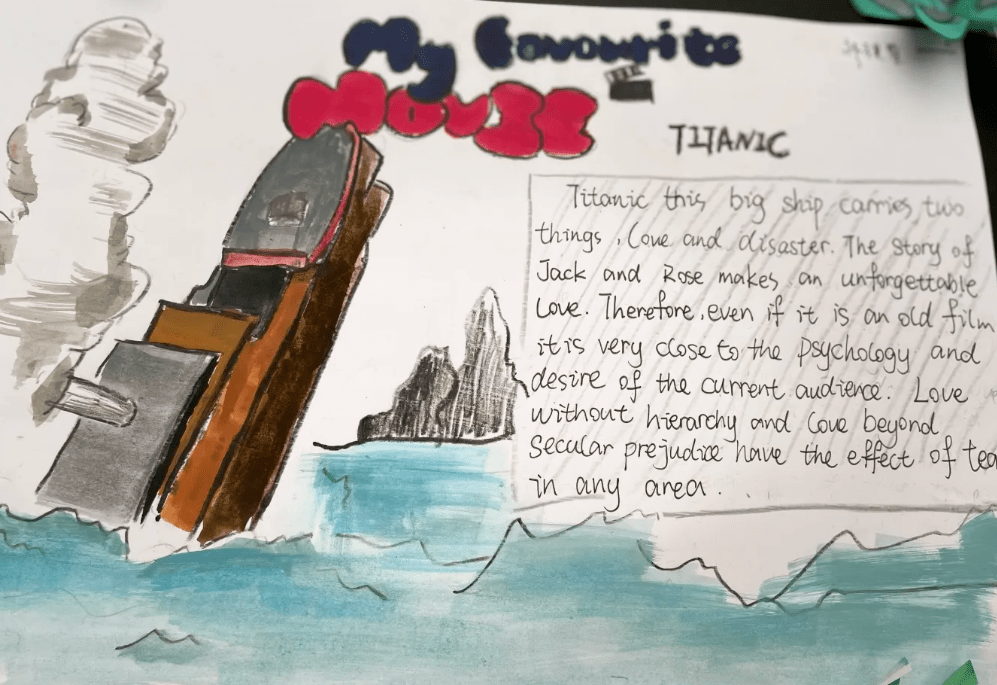 My favourite
MOVIE
TITANIC
Titanic this big ship carries two
things, Love and disaster. The story of
Jack and Rose makes an unforgettable
Love. Therefore, even if it is an old film
it is very close to the psychology and
desire of the current audience. Love
without hierarchy and Love beyond
secular prejudice have the effect of tea
in any area.